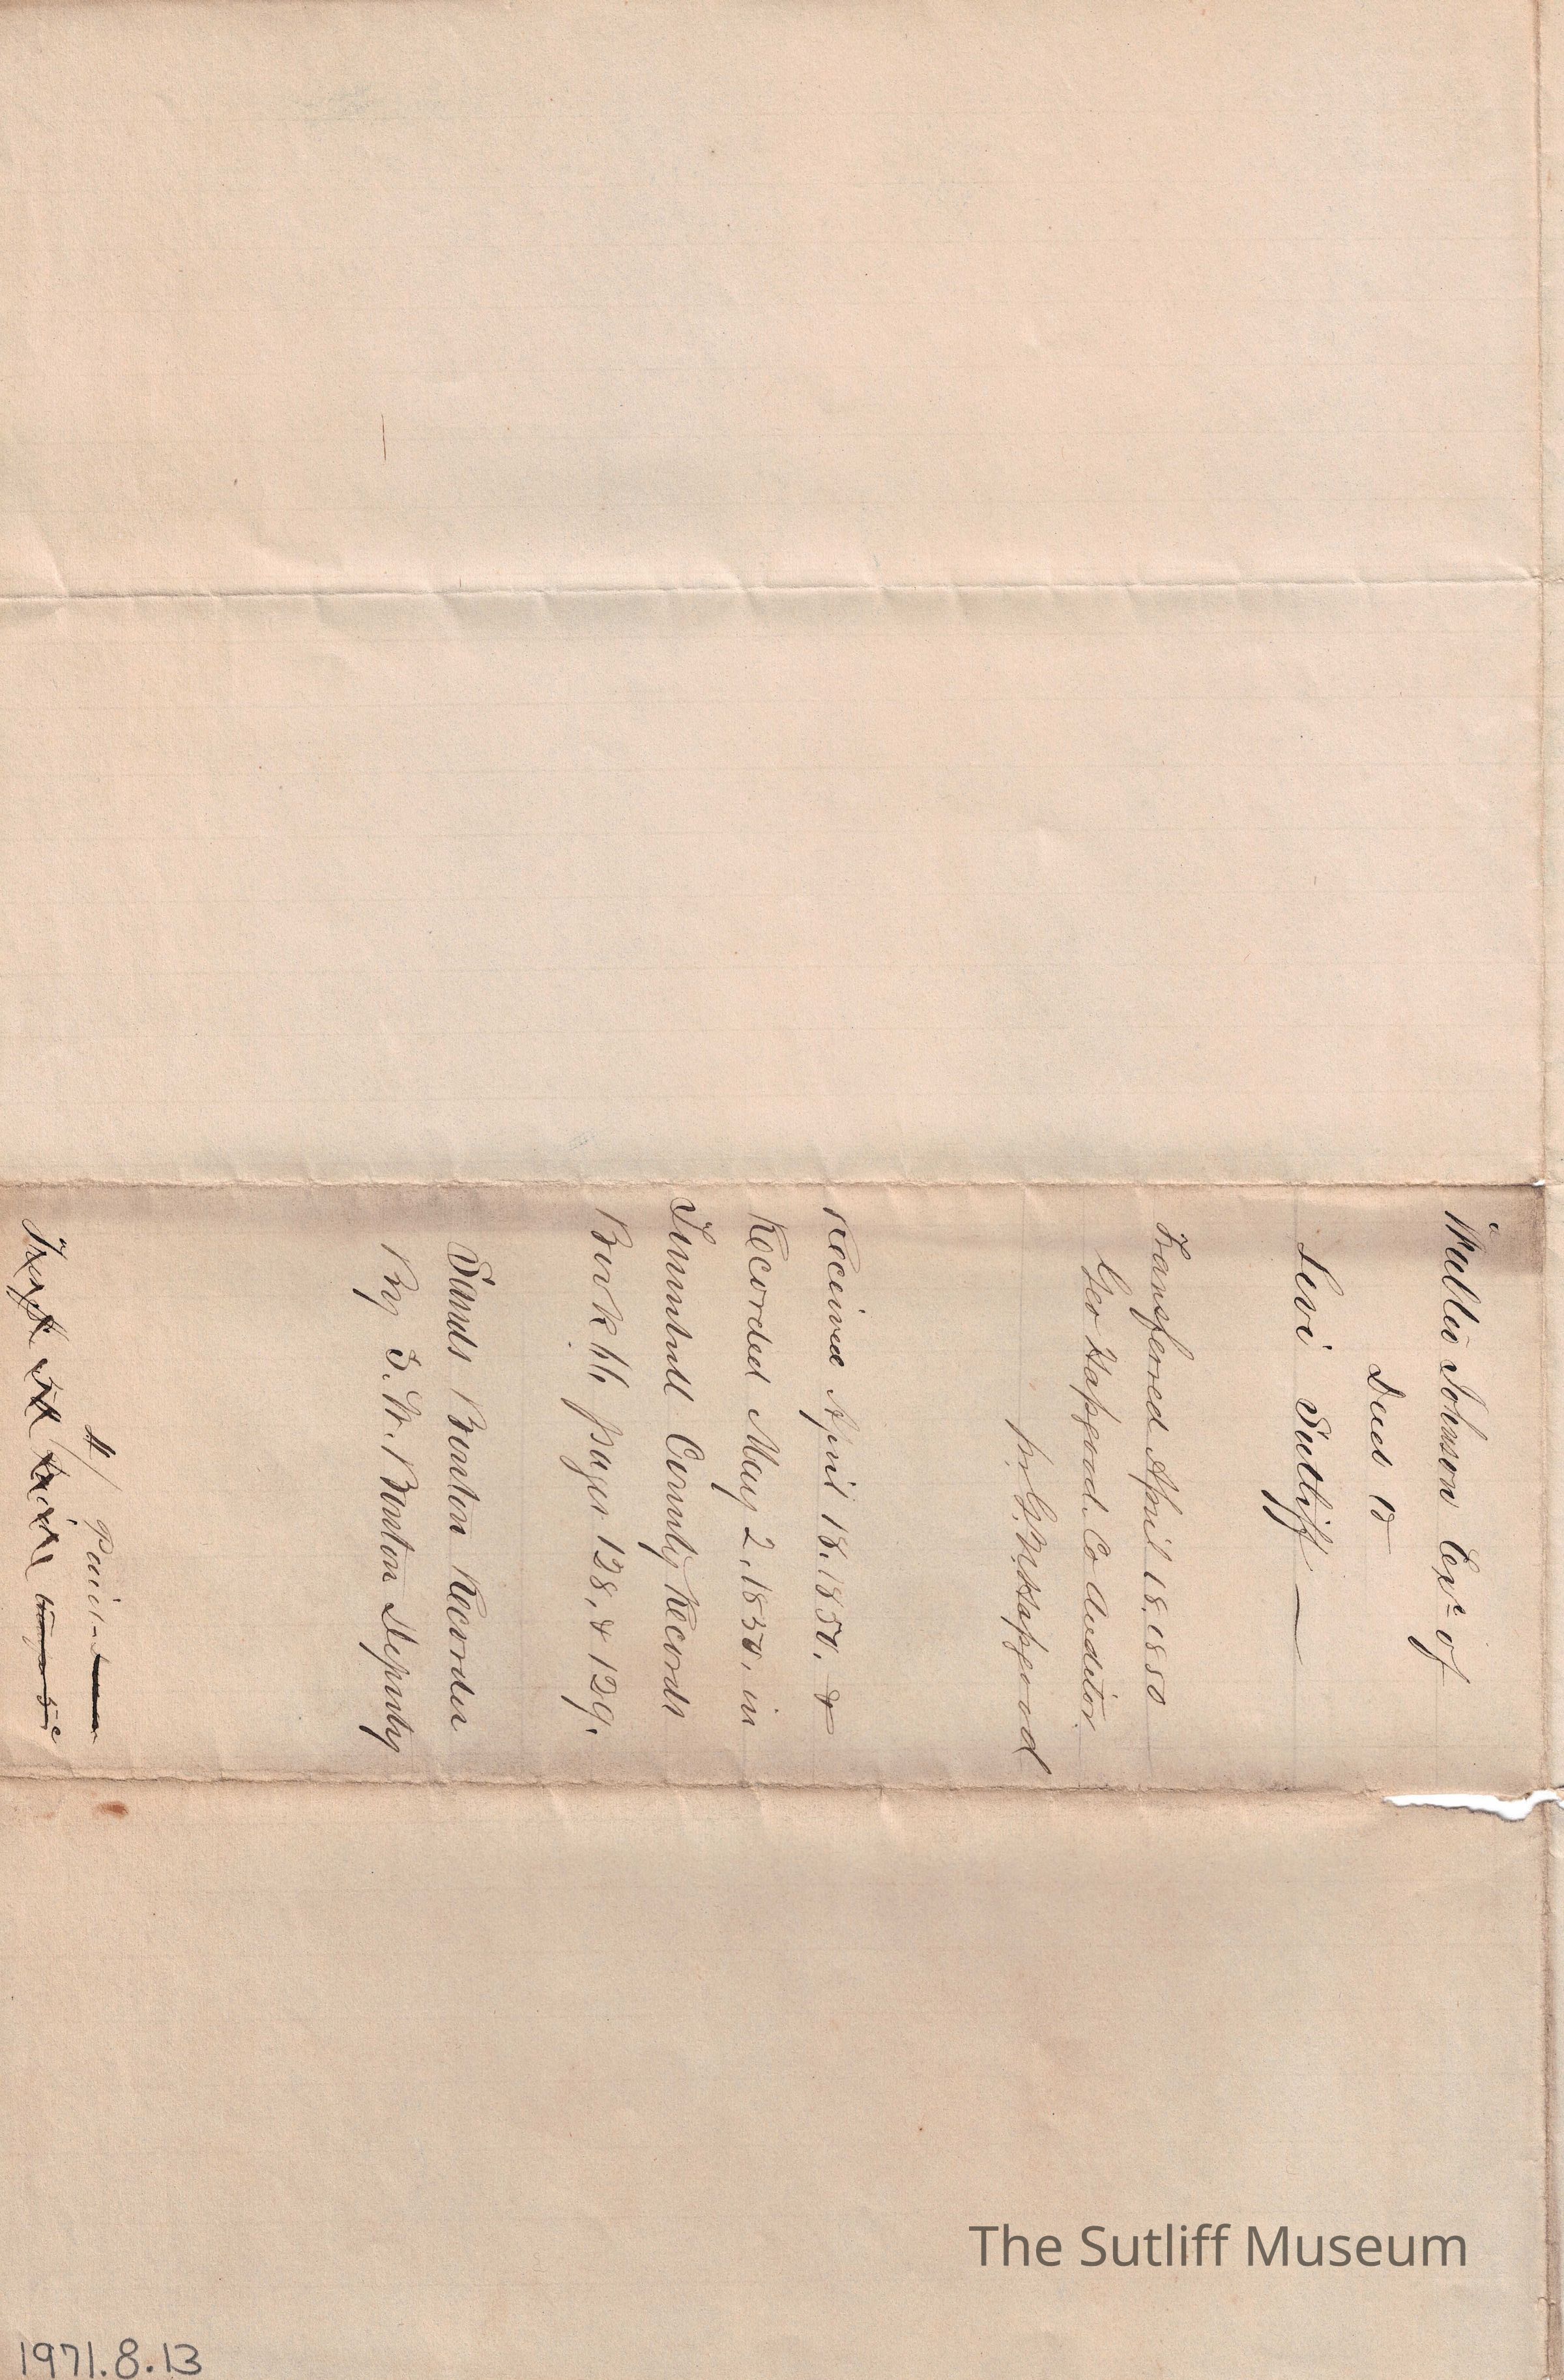 Johnson Exr of
Deed to
Levi Sutliff
Transferred April 18, 1850
Geo Hapgood. Co Auditor
pr. G. N. Hapgood
Received April 18, 1850, &
Recorded May 2, 1850, in
Trumbull County Records
Book 66 pages 128, & 129.
Recorder
By Deputy
Paid
The Sutliff Museum
1971.8.13